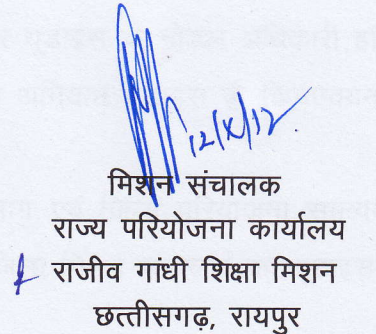 12/X/12
मिशन संचालक
राज्य परियोजना कार्यालय
राजीव गांधी शिक्षा मिशन
छत्तीसगढ़, रायपुर